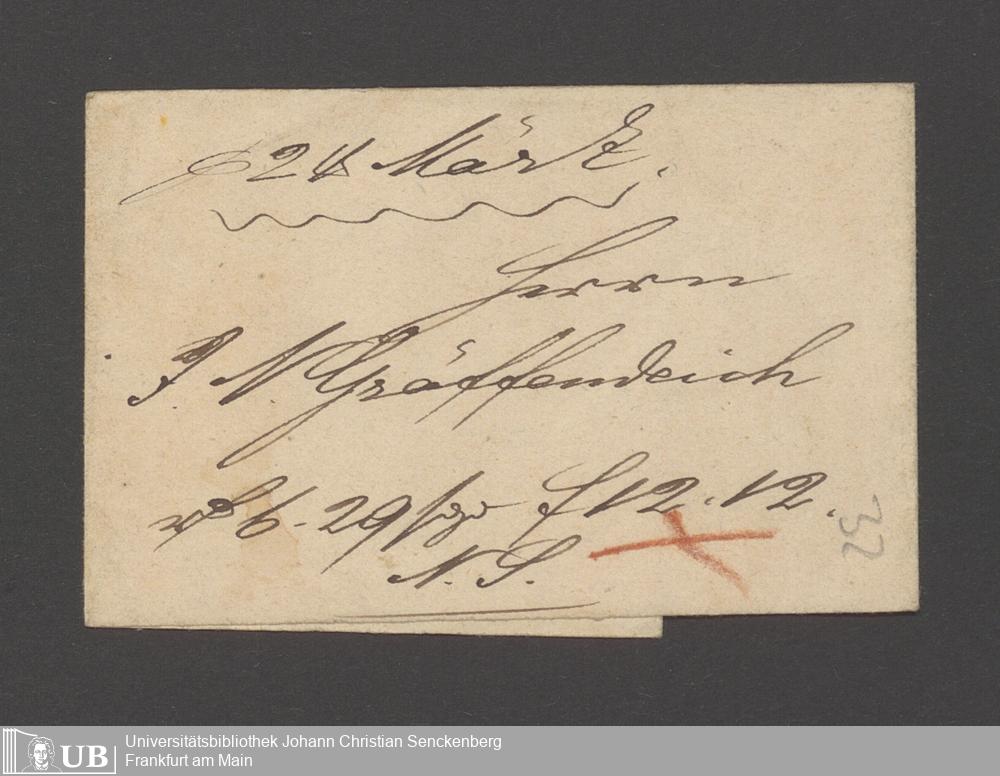 24 März.
Herrn
J N Gräffendeich
f 12.12.
N. S.
32
UB
Universitätsbibliothek Johann Christian Senckenberg
Frankfurt am Main